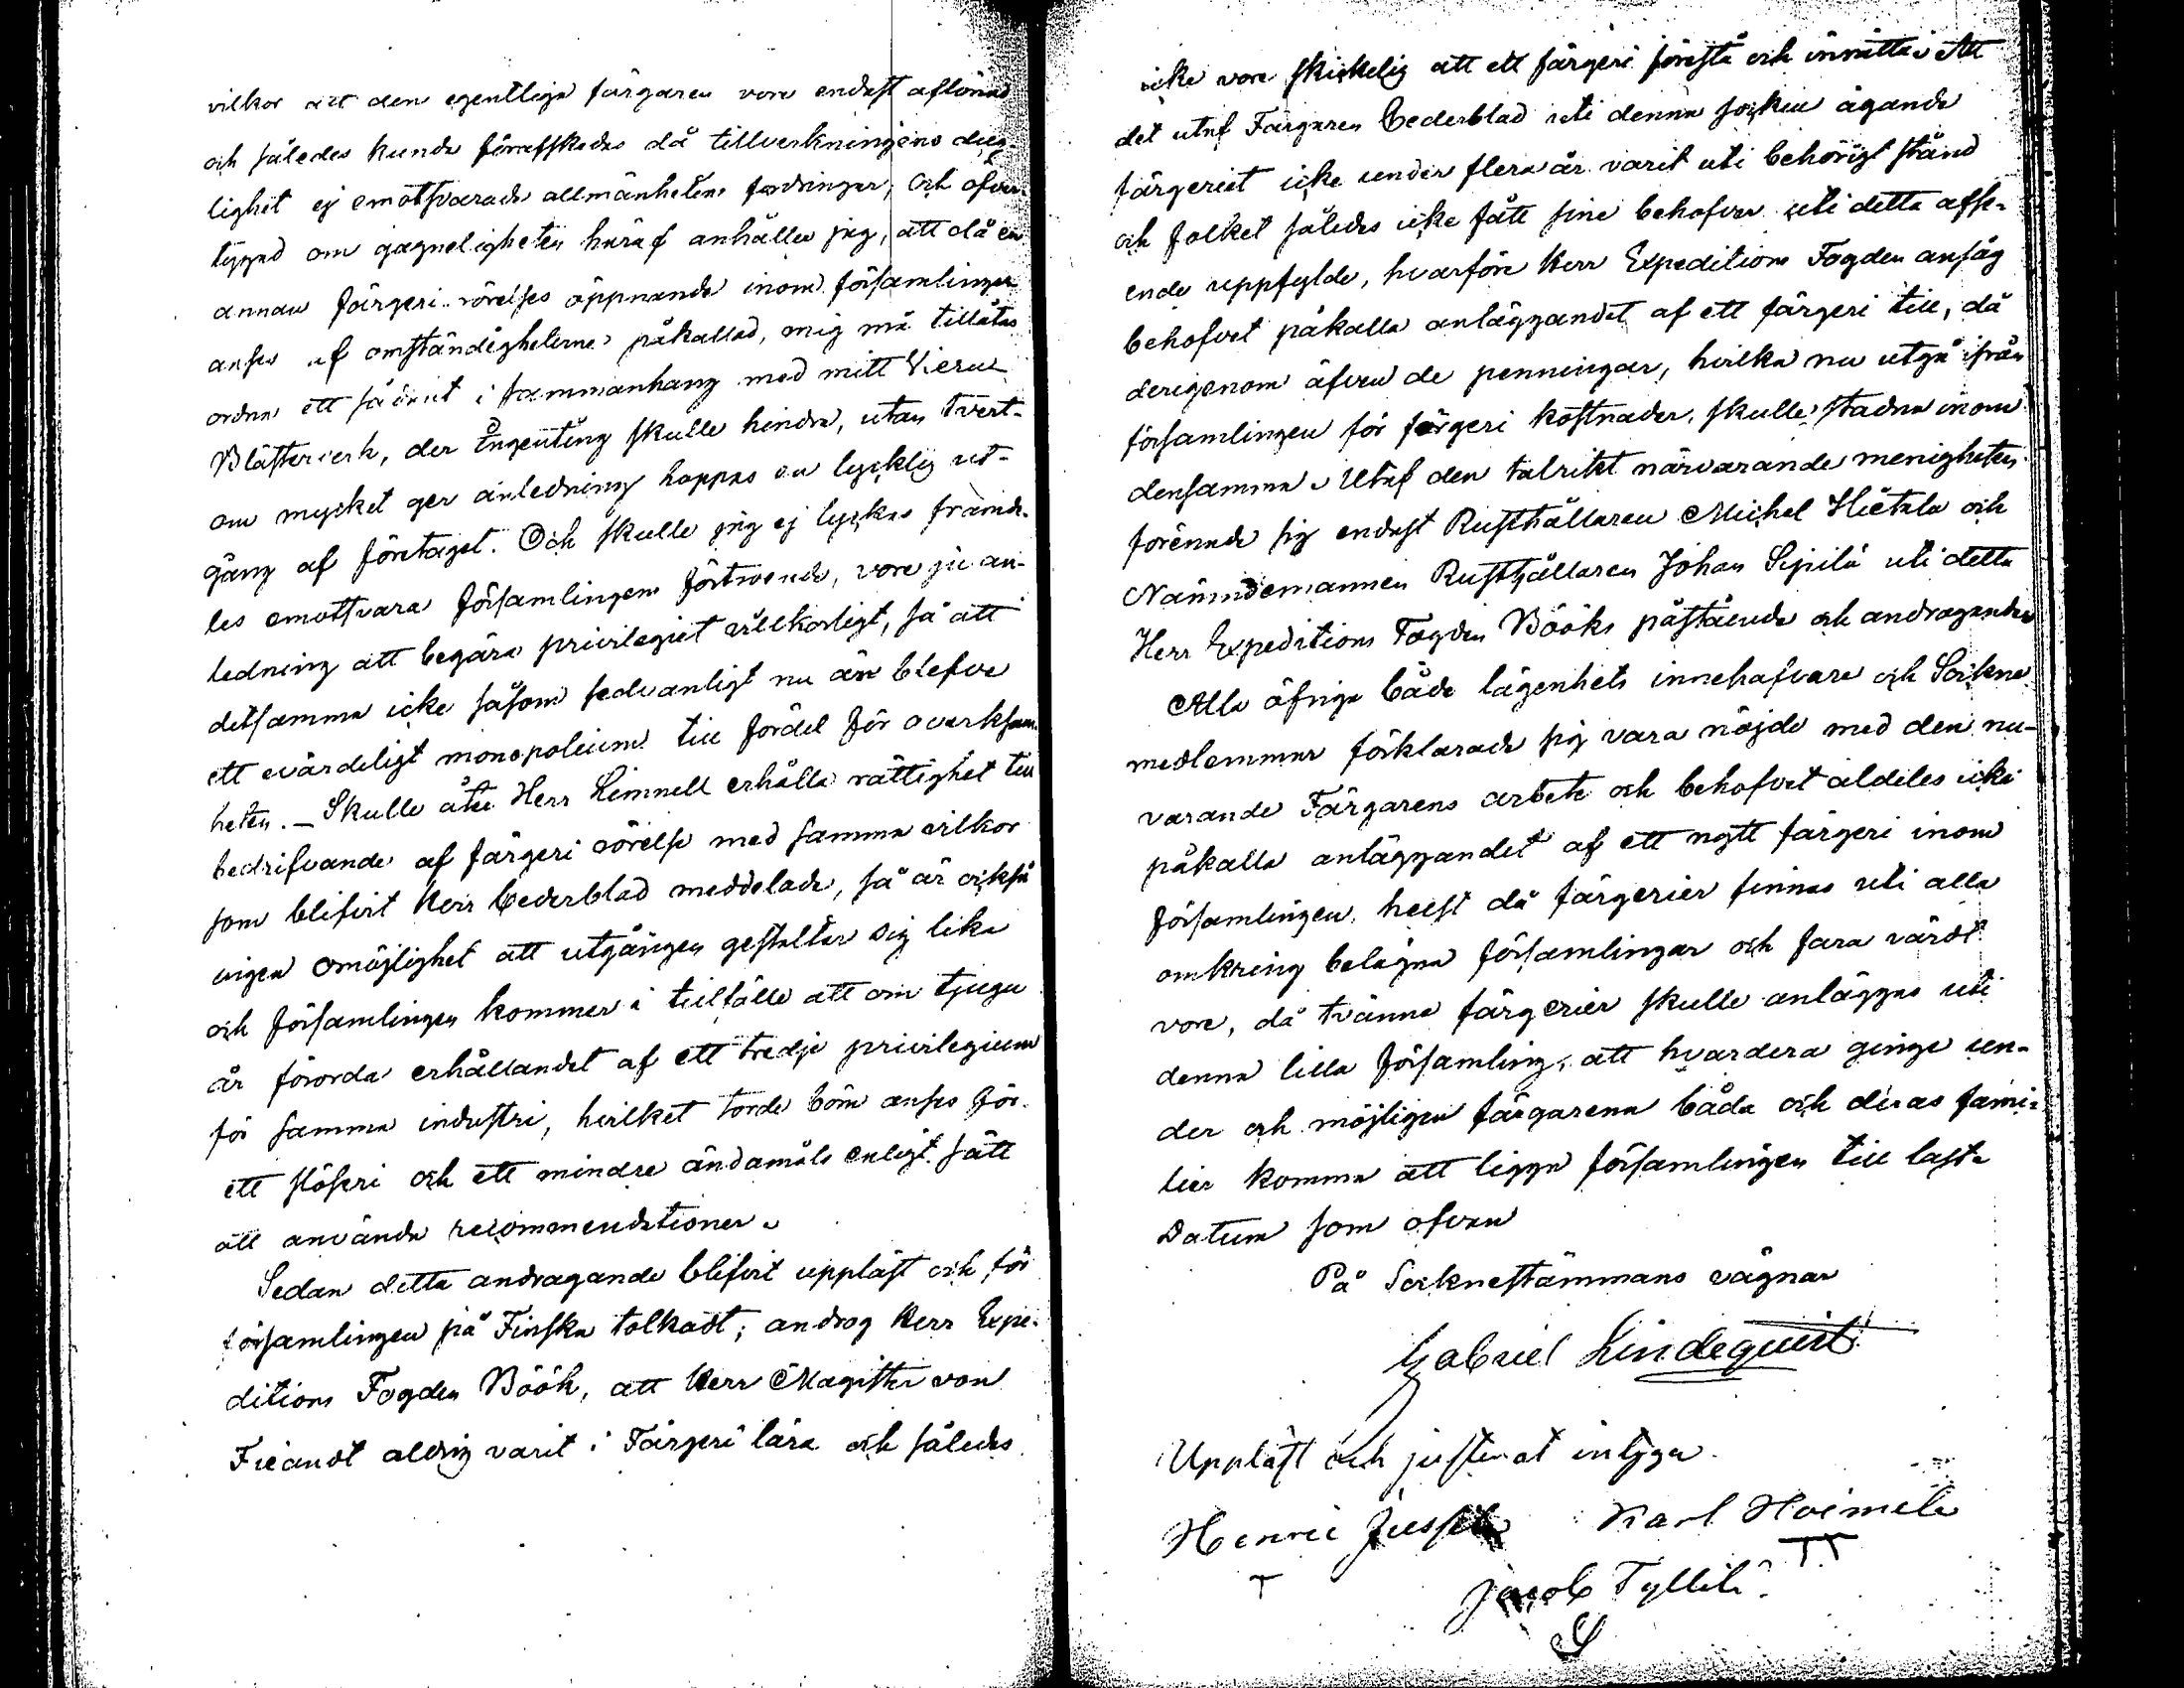 vilkor att den egentliga färgaren vore endast aflönad
och således kunde förafskedas då tillverkningens dug-
lighet ej emotsvarade allmänhetens fordringar, och öfver-
tygad om gagneligheten häraf anhåller jag, att då en
annan färgeri rörelses öppnande inom församlingen
anses af omständigheterne påkallad, mig må tillåtas
ordna ett sådant i sammanhang med mitt Vieru
Blåsterverk, der ingenting skulle hindra, utan tvert-
om mycket ger anledning hoppas en lycklig ut-
gång af företaget. Och skulle jag ej lyckas framde-
les emottsvara församlingens förtroende, vore ju an-
ledning att begära privilegiet villkorligt, så att
detsamma icke såsom sedvanligt nu än blefve
ett evärdeligt monopolium till fördel för overksam-
heten. – Skulle åter Herr Limnell erhålla rättighet till
bedrifvande af färgeri rörelse med samma vilkor
som blifvit Herr Cederblad meddelade, så är också
ingen omöjlighet att utgången gestaltar sig lika
och församlingen kommer i tillfälle att om tjugu
år förorda erhållandet af ett tredje privilegium
för samma industri, hvilket torde böra anses för
ett slöseri och ett mindre ändamåls enligt sätt
att använda recommendationer.
Sedan detta andragande blifvit uppläst och för
församlingen på Finska tolkadt, androg Herr Expe-
ditions Fogden Böök, att Herr Magister von
Fieandt aldrig varit i Färgeri lära och således
icke vore skickelig att ett färgeri förestå och inrätta. Att
det utaf Färgaren Cederblad uti denna socken ägande
färgeriet icke under flera år varit uti behörigt stånd
och folket således icke fått sine behofver uti detta afse-
ende uppfylde, hvarföre Herr Expeditions Fogden ansåg
behofvet påkalla anläggandet af ett färgeri till, då
derigenom äfven de penningar, hvilka nu utgå ifrån
församlingen för färgeri kostnader, skulle stadna inom
densamma. Utaf den talrikt närvarande menigheten
förenade sig endast Rusthållaren Michel Hietala och
Nämndemannen Rusthållaren Johan Sipilä uti detta
Herr Expeditions Fogden Bööks påstående och andragande
Alla öfriga både lägenhets innehafvare och Sockne
medlemmar förklarade sig vara nöjde med den nu-
varande Färgarens arbete och behofvet aldeles icke
påkalla anläggandet af ett nytt färgeri inom
församlingen, helst då färgerier finnas uti alla
omkring belägna församlingar och fara värdt
vore, då tvänne färgerier skulle anläggas uti
denna lilla församling, att hvardera ginge un-
der och möjligen färgarena båda och deras fami-
lier komma att ligga församlingen till last.
Datum som ofvan
På Socknestämmans vägnar
Gabriel Lindequist
Uppläst och justerat intyga
Henric Jussila Karl Heimela
Jacob Tyllilä